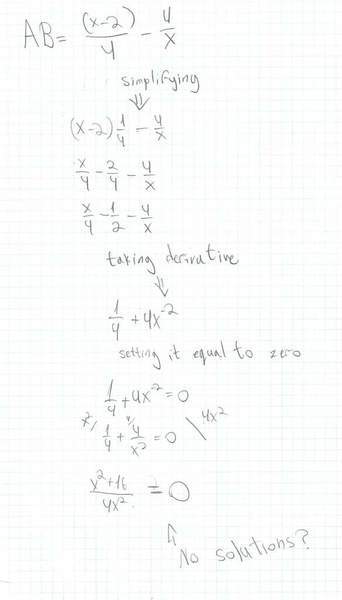 AB = (x-2)/4 - 4/x
simplifying
⇓
(x-2) 1/4 - 4/x
x/4 - 2/4 - 4/x
x/4 - 1/2 - 4/x
taking derivative
⇓
1/4 + 4x^-2
setting it equal to zero
1/4 + 4x^-2 = 0
x²/ 1/4 + 4/ 4/x² = 0 \ 4x²
(x²+16)/4x² = 0
⇑
No solutions?